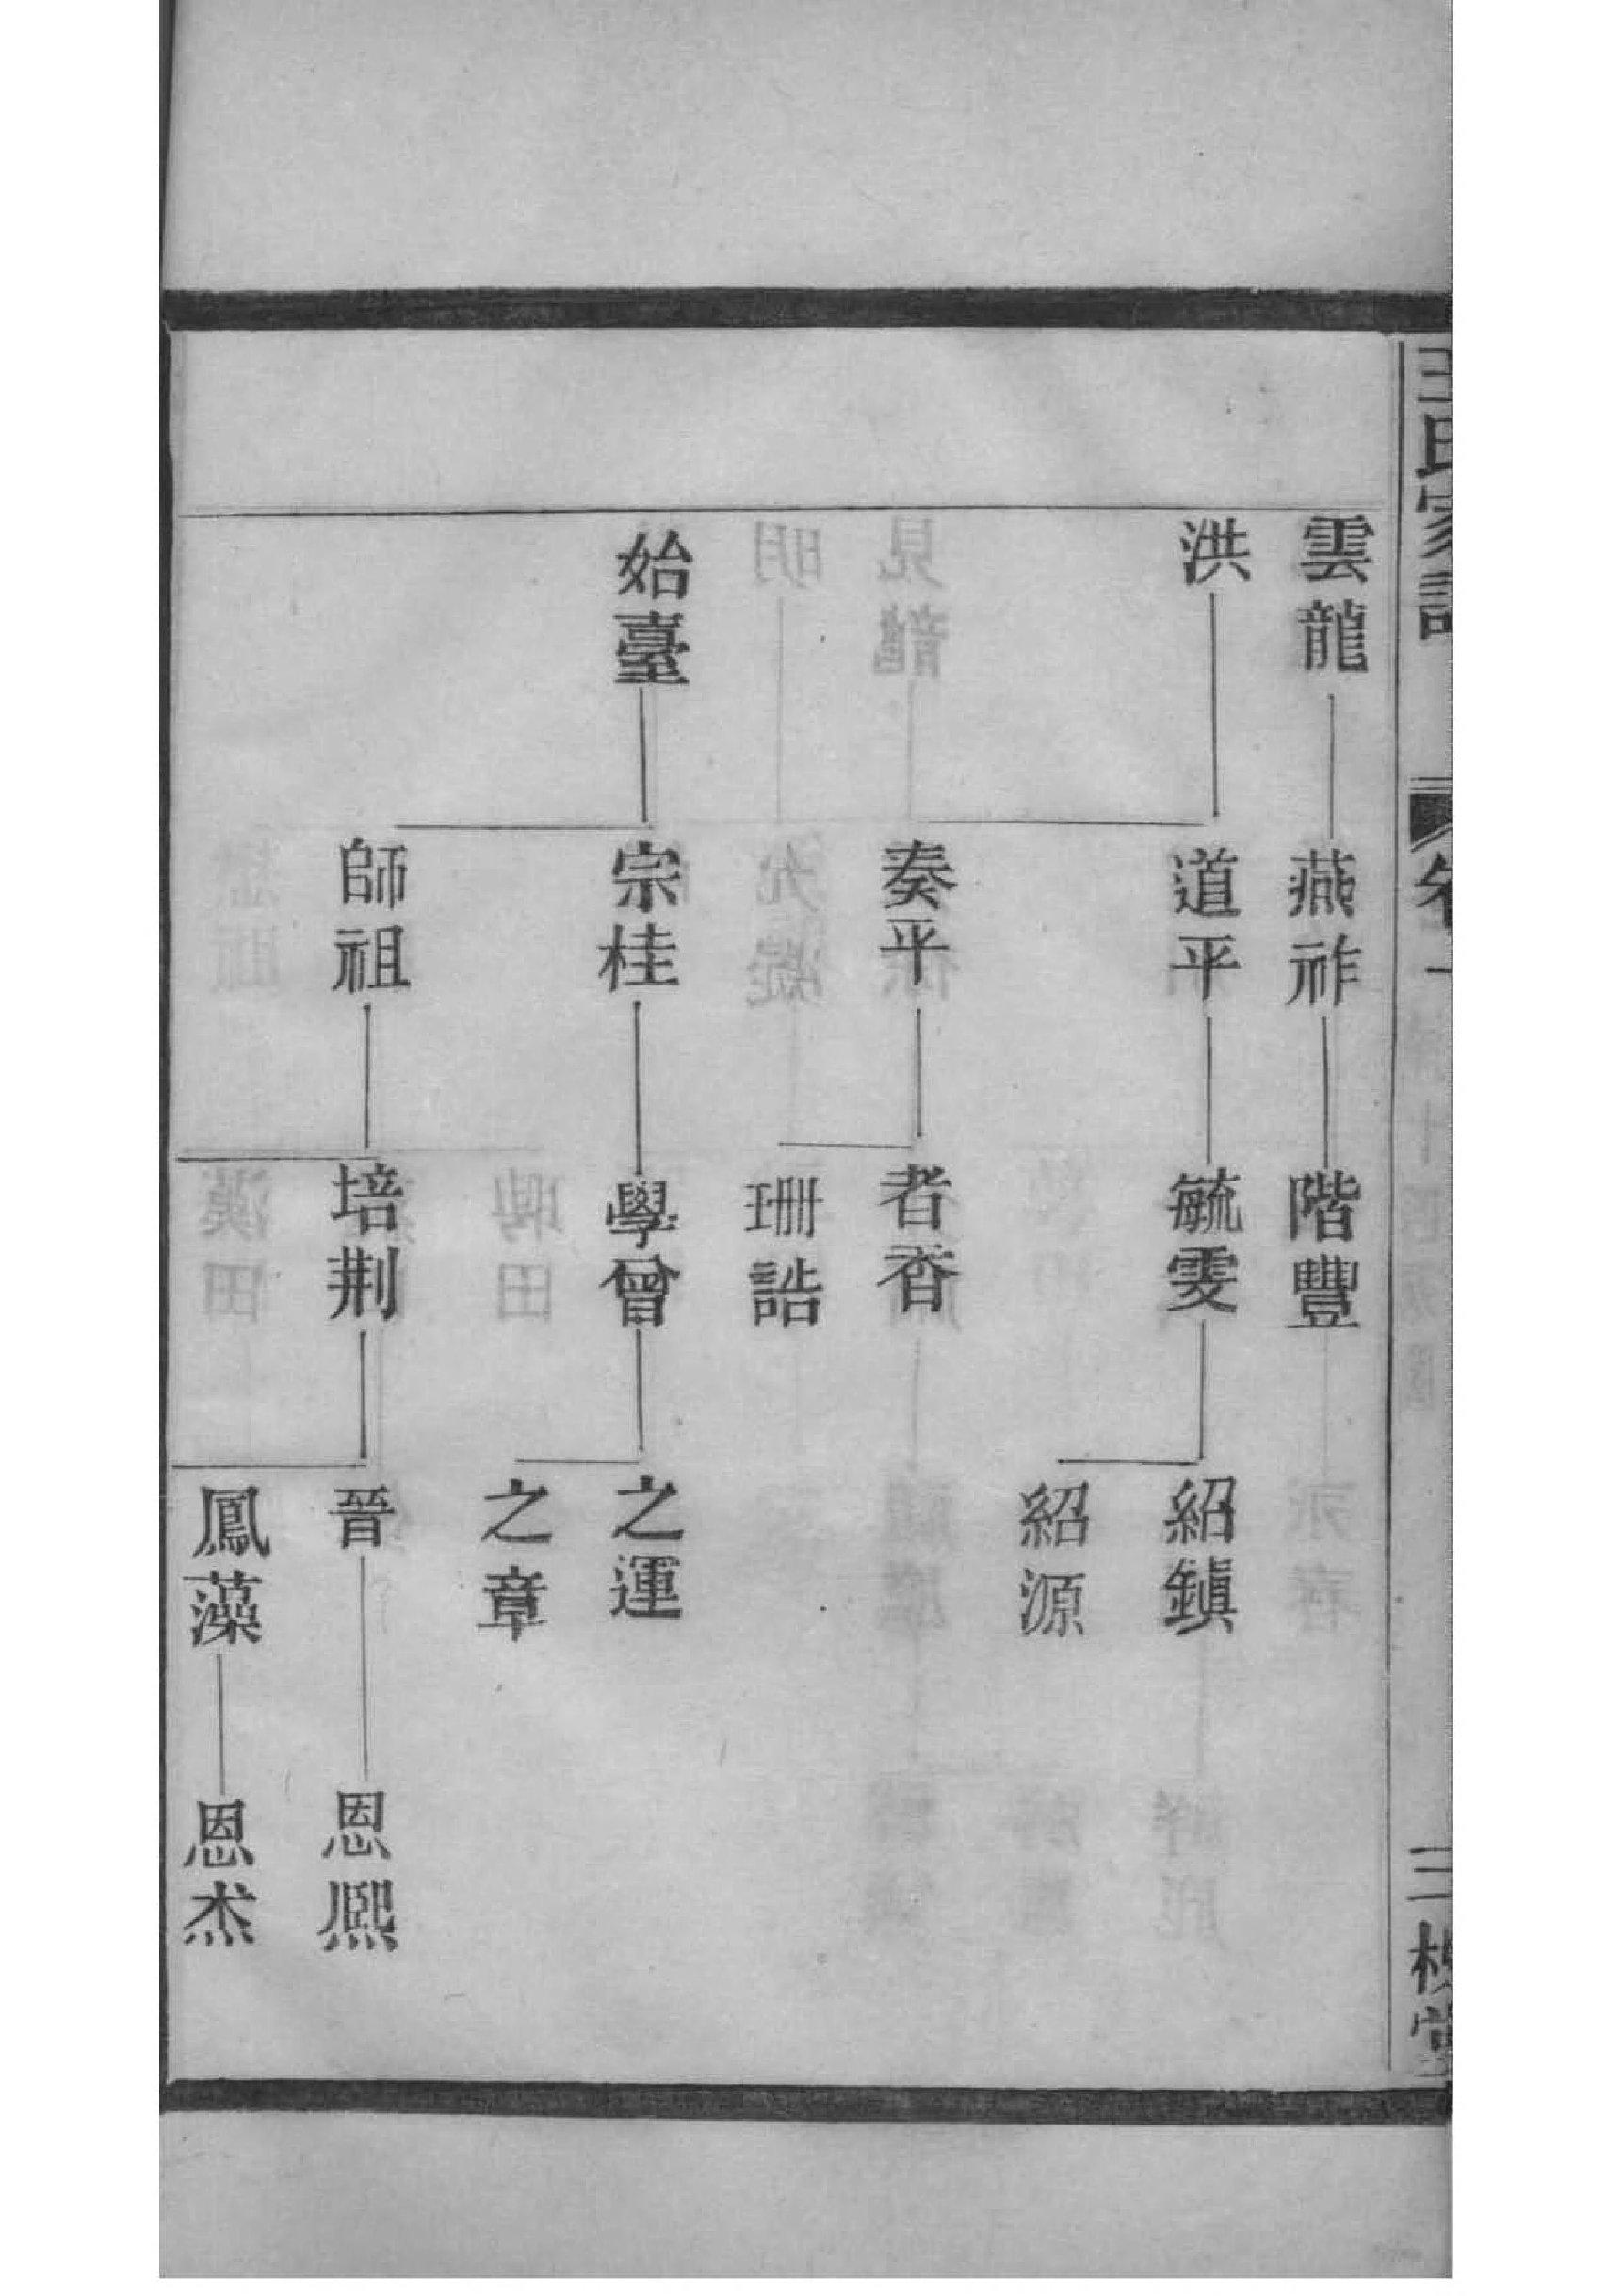 王氏家譜
卷一
三槐堂
雲龍
燕祚
階豐
洪
道平
毓雯
紹鎭
紹源
奏平
者香
珊誥
始臺
宗桂
學曾
之運
之章
師祖
培荆
晉
恩熙
鳳藻
恩杰